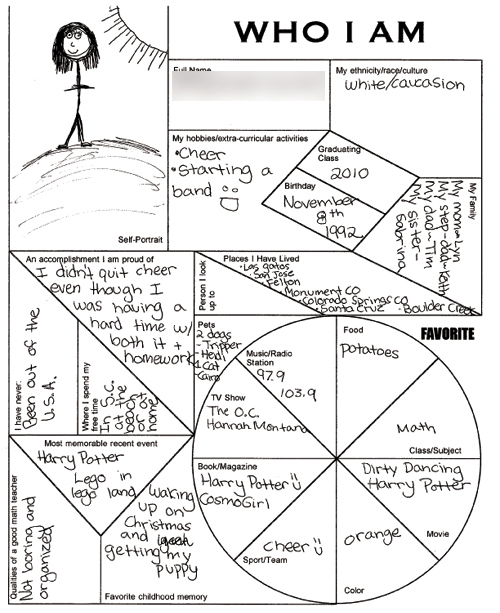 WHO I AM
Full Name
My ethnicity/race/culture
white/caucasion
My hobbies/extra-curricular activities
•Cheer
•Starting a
band
Graduating
Class
2010
Birthday
November
8th
1992
My Family
My mom-Lyn
My step-dad-Keith
My dad-Tim
My sister-
Sabrina
Self-Portrait
An accomplishment I am proud of
I didn't quit cheer
even though I
was having a
hard time w/
both it +
homework
Person I look
up to
Places I Have Lived
•Los gatos
•San Jose
•Felton
•Monument CO
•Colorado Springs CO
•Santa Cruz •Boulder Creek
I have never:
Been out of the
U.S.A.
Where I spend my
free time
In S.C.
at the
beach
or at
home
Pets
2 dogs
-Tripper
-Heidi
1 Cat
-Cairo
FAVORITE
Music/Radio
Station
97.9
103.9
Food
Potatoes
TV Show
The O.C.
Hannah Montana
Math
Class/Subject
Book/Magazine
Harry Potter
CosmoGirl
Dirty Dancing
Harry Potter
Movie
cheer
Sport/Team
orange
Color
Most memorable recent event
Harry Potter
Lego in
lego land
Qualities of a good math teacher
Not boring and
organized
Waking
up on
Christmas
and
getting my
puppy
Favorite childhood memory